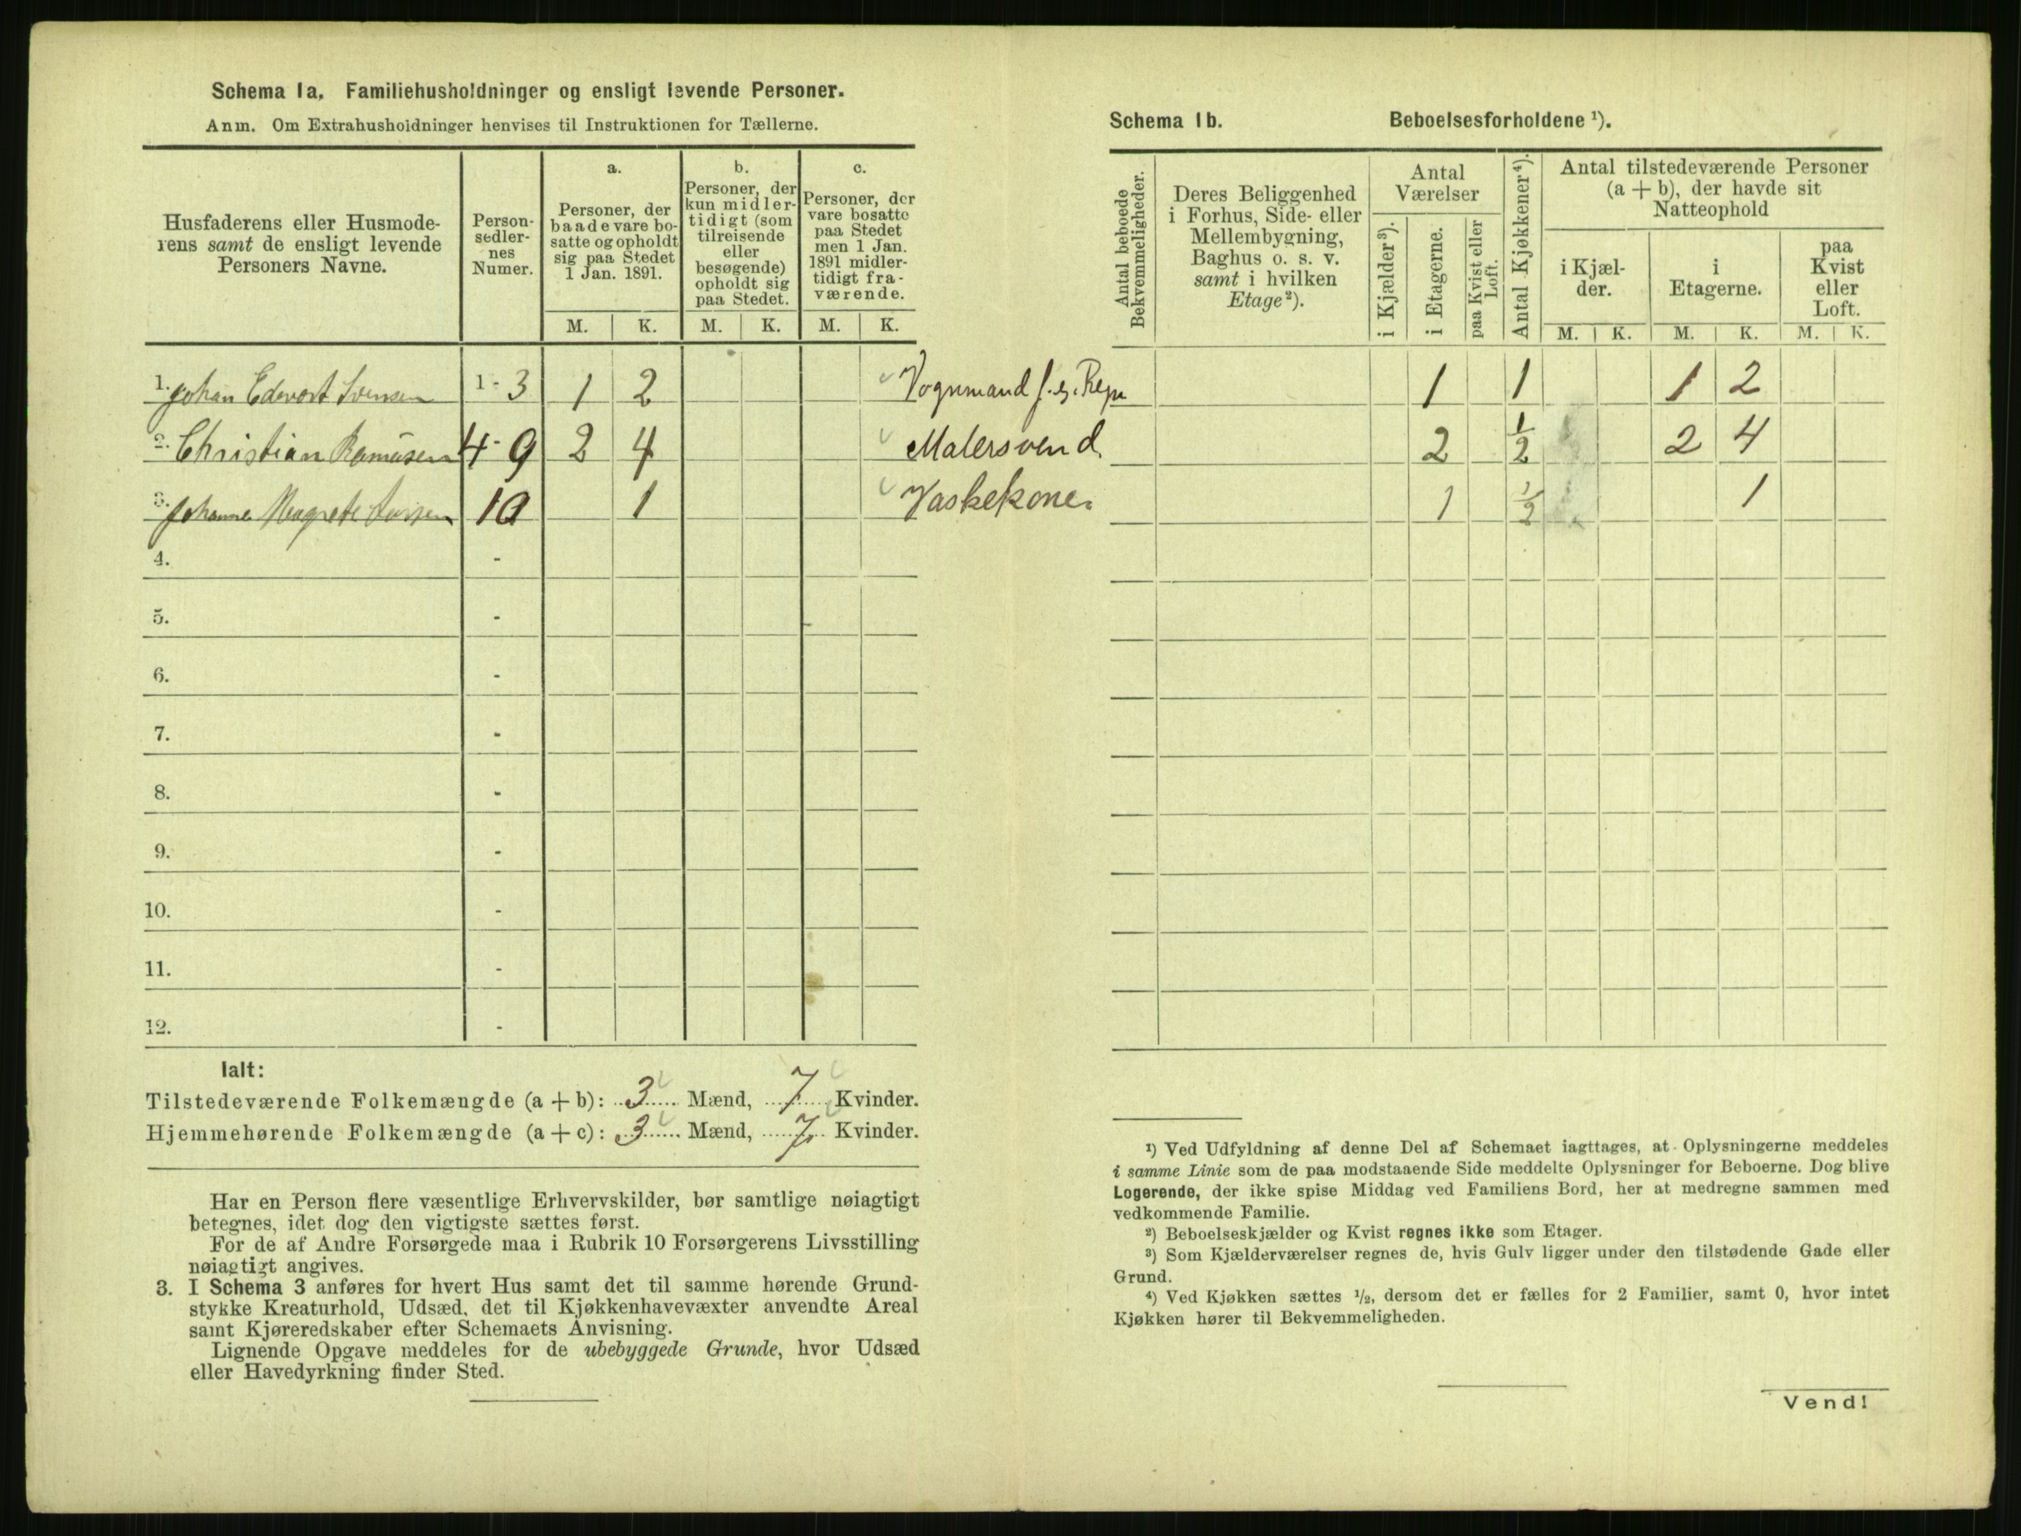 Schema 1a. Familiehusholdninger og ensligt levende Personer.
Anm. Om Extrahusholdninger henvises til Instruktionen for Tællerne.
Husfaderens eller Husmode-
rens samt de ensligt levende
Personers Navne.
Person-
sedler-
nes
Numer.
a.
Personer, der
baade vare bo-
satte og opholdt
sig paa Stedet
1 Jan. 1891.
b.
Personer, der
kun midler-
tidigt (som
tilreisende
eller
besøgende)
opholdt sig
paa Stedet.
c.
Personer, der
vare bosatte
paa Stedet
men 1 Jan.
1891 midler-
tidigt fra-
værende.
M. K. M. K. M. K.
1. Johan Edevart Svensen 1 - 3 1 2 Vognmand f. e. Regn
2. Christian Ramusen 4 - 9 2 4 Malersvend.
3. Johanne Magrete 10 1 Vaskekone.
4. -
5. -
6. -
7. -
8. -
9. -
10. -
11. -
12. -
Ialt:
Tilstedeværende Folkemængde (a + b): 3 Mænd, 7 Kvinder.
Hjemmehørende Folkemængde (a + c): 3 Mænd, 7 Kvinder.
Har en Person flere væsentlige Erhvervskilder, bør samtlige nøiagtigt
betegnes, idet dog den vigtigste sættes først.
For de af Andre Forsørgede maa i Rubrik 10 Forsørgerens Livsstilling
nøiagtigt angives.
3. I Schema 3 anføres for hvert Hus samt det til samme hørende Grund-
stykke Kreaturhold, Udsæd, det til Kjøkkenhavevæxter anvendte Areal
samt Kjøreredskaber efter Schemaets Anvisning.
Lignende Opgave meddeles for de ubebyggede Grunde, hvor Udsæd
eller Havedyrkning finder Sted.
Schema 1b. Beboelsesforholdene ¹).
Antal beboede
Bekvemmeligheder.
Deres Beliggenhed
i Forhus, Side- eller
Mellembygning,
Baghus o. s. v.
samt i hvilken
Etage ²).
Antal
Værelser
i Kjælder ³).
i Etagerne.
paa Kvist eller
Loft.
Antal Kjøkkener ⁴).
Antal tilstedeværende Personer
(a + b), der havde sit
Natteophold
i Kjæl-
der.
i
Etagerne.
paa
Kvist
eller
Loft.
M. K. M. K. M. K.
1 1 1 2
2 1/2 2 4
1 1/2 1
¹) Ved Udfyldning af denne Del af Schemaet iagttages, at Oplysningerne meddeles
i samme Linie som de paa modstaaende Side meddelte Oplysninger for Beboerne. Dog blive
Logerende, der ikke spise Middag ved Familiens Bord, her at medregne sammen med
vedkommende Familie.
²) Beboelseskjælder og Kvist regnes ikke som Etager.
³) Som Kjælderværelser regnes de, hvis Gulv ligger under den tilstødende Gade eller
Grund.
⁴) Ved Kjøkken sættes ¹/₂, dersom det er fælles for 2 Familier, samt 0, hvor intet
Kjøkken hører til Bekvemmeligheden.
Vend!